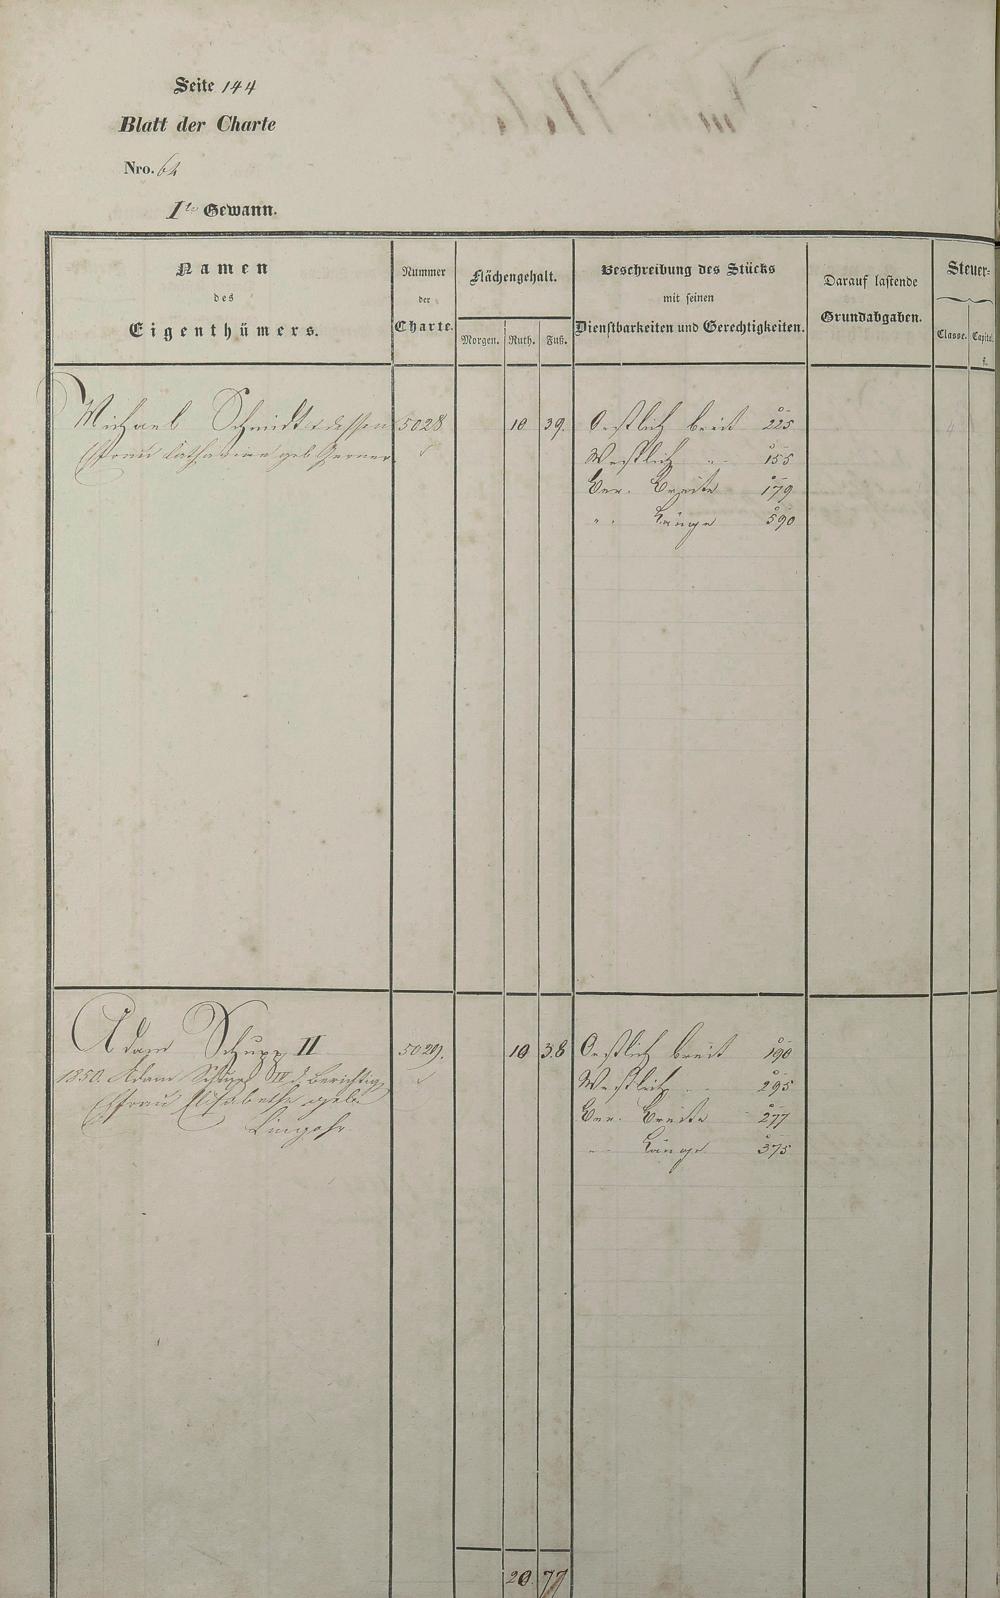 Seite 144
Blatt der Charte
Nro. 62
1te Gewann.
Namen
des
Eigenthümers.
Nummer
der
Charte.
Flächengehalt.
Morgen. Ruth. Fuß.
Beschreibung des Stücks
mit seinen
Dienstbarkeiten und Gerechtigkeiten.
Darauf lastende
Grundabgaben.
Steuer-
Classe. Capital.
f.
Michael Schmidt u. dessen 5028 10 39. Oestlich breit 225
Ehefrau Catharine geb. Gerner
Westlich " 155
Ver. Breite 179
" Länge 590
Adam Schupp II 5029. 10 38 Oestlich breit 190
1850. Adam Schupp IV d. berichtig
Westlich " 295
Ehefrau Elisabetha geb.
Ver. Breite 277
Lingohr.
" Länge 375
20 77